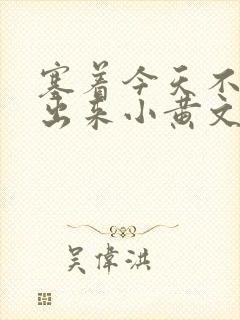 塞着今天不
出来小黄文
吴偉洪